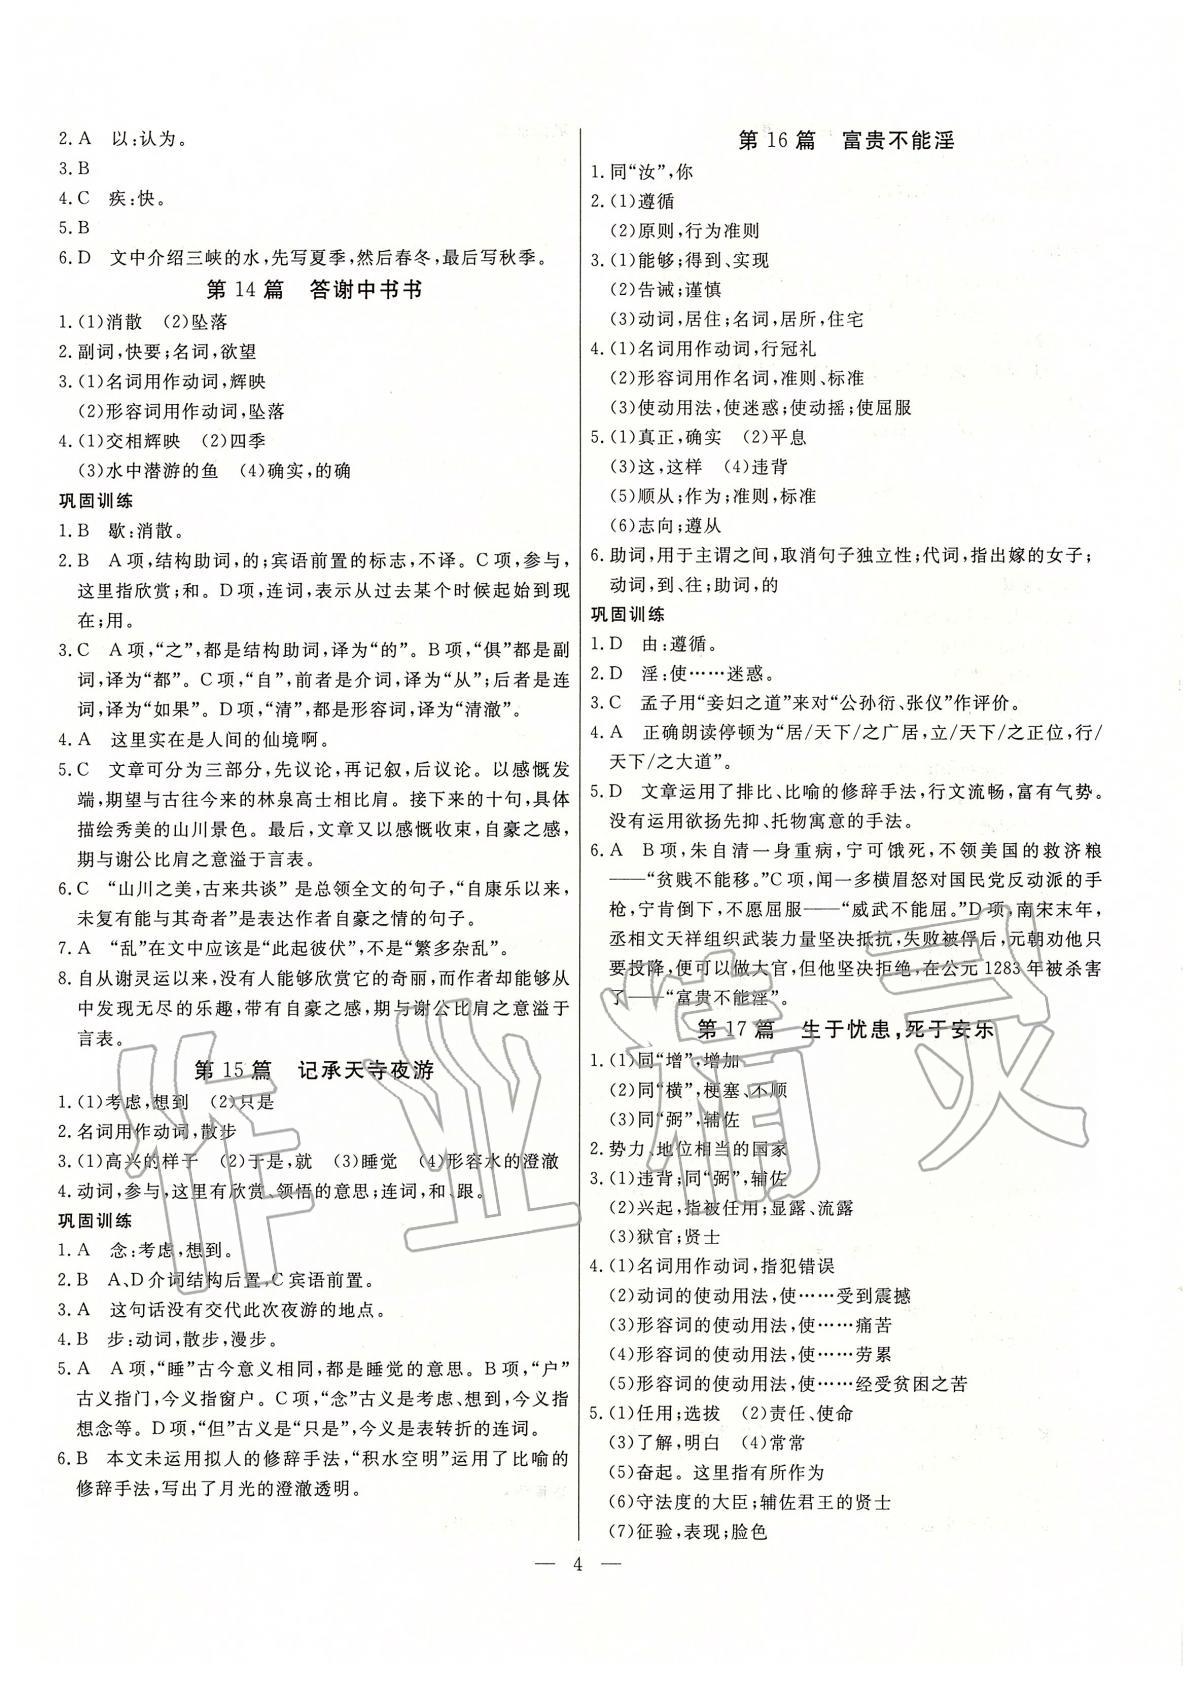 2. A　以:认为。
3. B
4. C　疾:快。
5. B
6. D　文中介绍三峡的水,先写夏季,然后春冬,最后写秋季。
第 14 篇　答谢中书书
1. (1)消散　(2)坠落
2. 副词,快要;名词,欲望
3. (1)名词用作动词,辉映
(2)形容词用作动词,坠落
4. (1)交相辉映　(2)四季
(3)水中潜游的鱼　(4)确实,的确
巩固训练
1. B　歇:消散。
2. B　A 项,结构助词,的;宾语前置的标志,不译。C 项,参与,
这里指欣赏;和。D 项,连词,表示从过去某个时候起始到现
在;用。
3. C　A 项,“之”,都是结构助词,译为“的”。B 项,“俱”都是副
词,译为“都”。C 项,“自”,前者是介词,译为“从”;后者是连
词,译为“如果”。D 项,“清”,都是形容词,译为“清澈”。
4. A　这里实在是人间的仙境啊。
5. C　文章可分为三部分,先议论,再记叙,后议论。以感慨发
端,期望与古往今来的林泉高士相比肩。接下来的十句,具体
描绘秀美的山川景色。最后,文章又以感慨收束,自豪之感,
期与谢公比肩之意溢于言表。
6. C　“山川之美,古来共谈”是总领全文的句子,“自康乐以来,
未复有能与其奇者”是表达作者自豪之情的句子。
7. A　“乱”在文中应该是“此起彼伏”,不是“繁多杂乱”。
8. 自从谢灵运以来,没有人能够欣赏它的奇丽,而作者却能够从
中发现无尽的乐趣,带有自豪之感,期与谢公比肩之意溢于
言表。
第 15 篇　记承天寺夜游
1. (1)考虑,想到　(2)只是
2. 名词用作动词,散步
3. (1)高兴的样子　(2)于是,就　(3)睡觉　(4)形容水的澄澈
4. 动词,参与,这里有欣赏、领悟的意思;连词,和、跟。
巩固训练
1. A　念:考虑,想到。
2. B　A、D 介词结构后置,C 宾语前置。
3. A　这句话没有交代此次夜游的地点。
4. B　步:动词,散步,漫步。
5. A　A 项,“睡”古今意义相同,都是睡觉的意思。B 项,“户”
古义指门,今义指窗户。C 项,“念”古义是考虑、想到,今义指
想念等。D 项,“但”古义是“只是”,今义是表转折的连词。
6. B　本文未运用拟人的修辞手法,“积水空明”运用了比喻的
修辞手法,写出了月光的澄澈透明。
第 16 篇　富贵不能淫
1. 同“汝”,你
2. (1)遵循
(2)原则,行为准则
3. (1)能够;得到、实现
(2)告诫;谨慎
(3)动词,居住;名词,居所,住宅
4. (1)名词用作动词,行冠礼
(2)形容词用作名词,准则、标准
(3)使动用法,使迷惑;使动摇;使屈服
5. (1)真正,确实　(2)平息
(3)这,这样　(4)违背
(5)顺从;作为;准则,标准
(6)志向;遵从
6. 助词,用于主谓之间,取消句子独立性;代词,指出嫁的女子;
动词,到、往;助词,的
巩固训练
1. D　由:遵循。
2. D　淫:使……迷惑。
3. C　孟子用“妾妇之道”来对“公孙衍、张仪”作评价。
4. A　正确朗读停顿为“居/天下/之广居,立/天下/之正位,行/
天下/之大道”。
5. D　文章运用了排比、比喻的修辞手法,行文流畅,富有气势。
没有运用欲扬先抑、托物寓意的手法。
6. A　B 项，朱自清一身重病,宁可饿死,不领美国的救济粮
——“贫贱不能移。”C 项,闻一多横眉怒对国民党反动派的手
枪,宁肯倒下,不愿屈服——“威武不能屈。”D 项,南宋末年,
丞相文天祥组织武装力量坚决抵抗,失败被俘后,元朝劝他只
要投降,便可以做大官,但他坚决拒绝,在公元 1283 年被杀害
了——“富贵不能淫”。
第 17 篇　生于忧患,死于安乐
1. (1)同“增”,增加
(2)同“横”,梗塞、不顺
(3)同“弼”,辅佐
2. 势力、地位相当的国家
3. (1)违背;同“弼”,辅佐
(2)兴起,指被任用;显露、流露
(3)狱官;贤士
4. (1)名词用作动词,指犯错误
(2)动词的使动用法,使……受到震撼
(3)形容词的使动用法,使……痛苦
(4)形容词的使动用法,使……劳累
(5)形容词的使动用法,使……经受贫困之苦
5. (1)任用;选拔　(2)责任、使命
(3)了解,明白　(4)常常
(5)奋起。这里指有所作为
(6)守法度的大臣;辅佐君王的贤士
(7)征验,表现;脸色
— 4 —
作业精灵